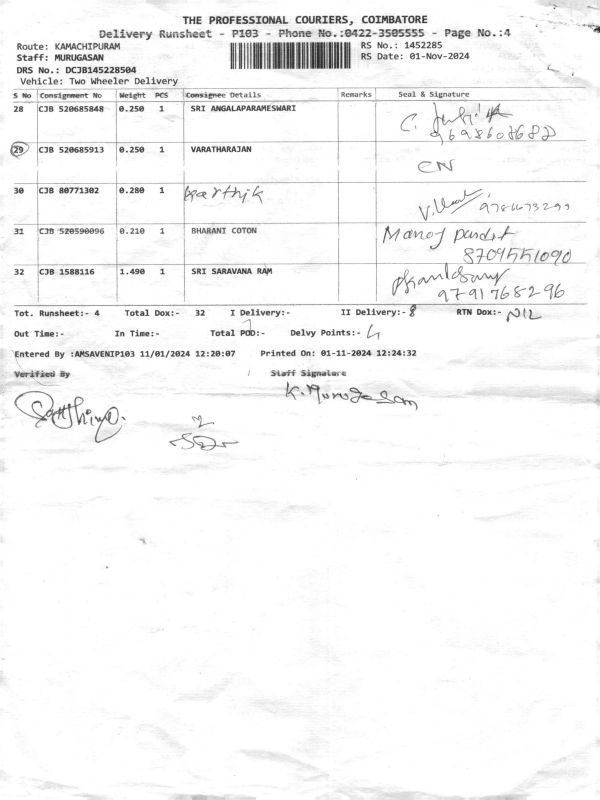 THE PROFESSIONAL COURIERS, COIMBATORE
Delivery Runsheet - P103 - Phone No.:0422-3505555 - Page No.:4
Route: KAMACHIPURAM RS No.: 1452285
Staff: MURUGASAN RS Date: 01-Nov-2024
DRS No.: DCJB145228504
Vehicle: Two Wheeler Delivery
S No Consignment No Weight PCS Consignee Details Remarks Seal & Signature
28 CJB 520685848 0.250 1 SRI ANGALAPARAMESWARI
29 CJB 520685913 0.250 1 VARATHARAJAN CN
30 CJB 80771302 0.280 1 Karthik
31 CJB 520590096 0.210 1 BHARANI COTON Manoj Pandit
8709551090
32 CJB 1588116 1.490 1 SRI SARAVANA RAM
9791768296
Tot. Runsheet:- 4 Total Dox:- 32 I Delivery:- II Delivery:- 8 RTN Dox:- NIL
Out Time:- In Time:- Total POD:- Delvy Points:- 4
Entered By :AMSAVENIP103 11/01/2024 12:20:07 Printed On: 01-11-2024 12:24:32
Verified By Staff Signature
K. Murugesan